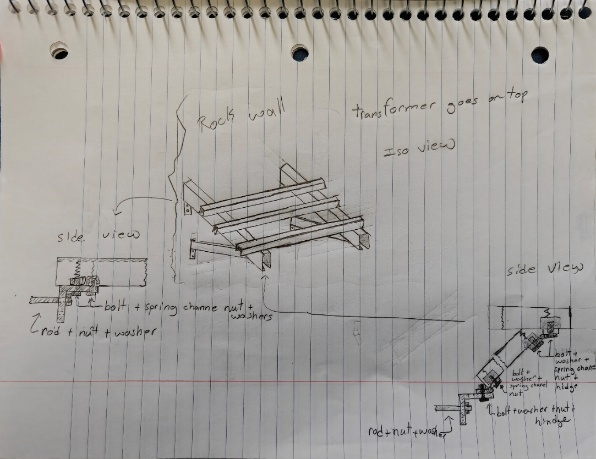 Rock wall
transformer goes on top
Iso view
side view
bolt + spring channe nut +
washers
rod + nut + washer
side view
bolt +
washer +
spring chanel
nut +
hidge
bolt +
washer +
spring chanel
nut
bolt + washer + nut +
hindge
rod + nut + washer